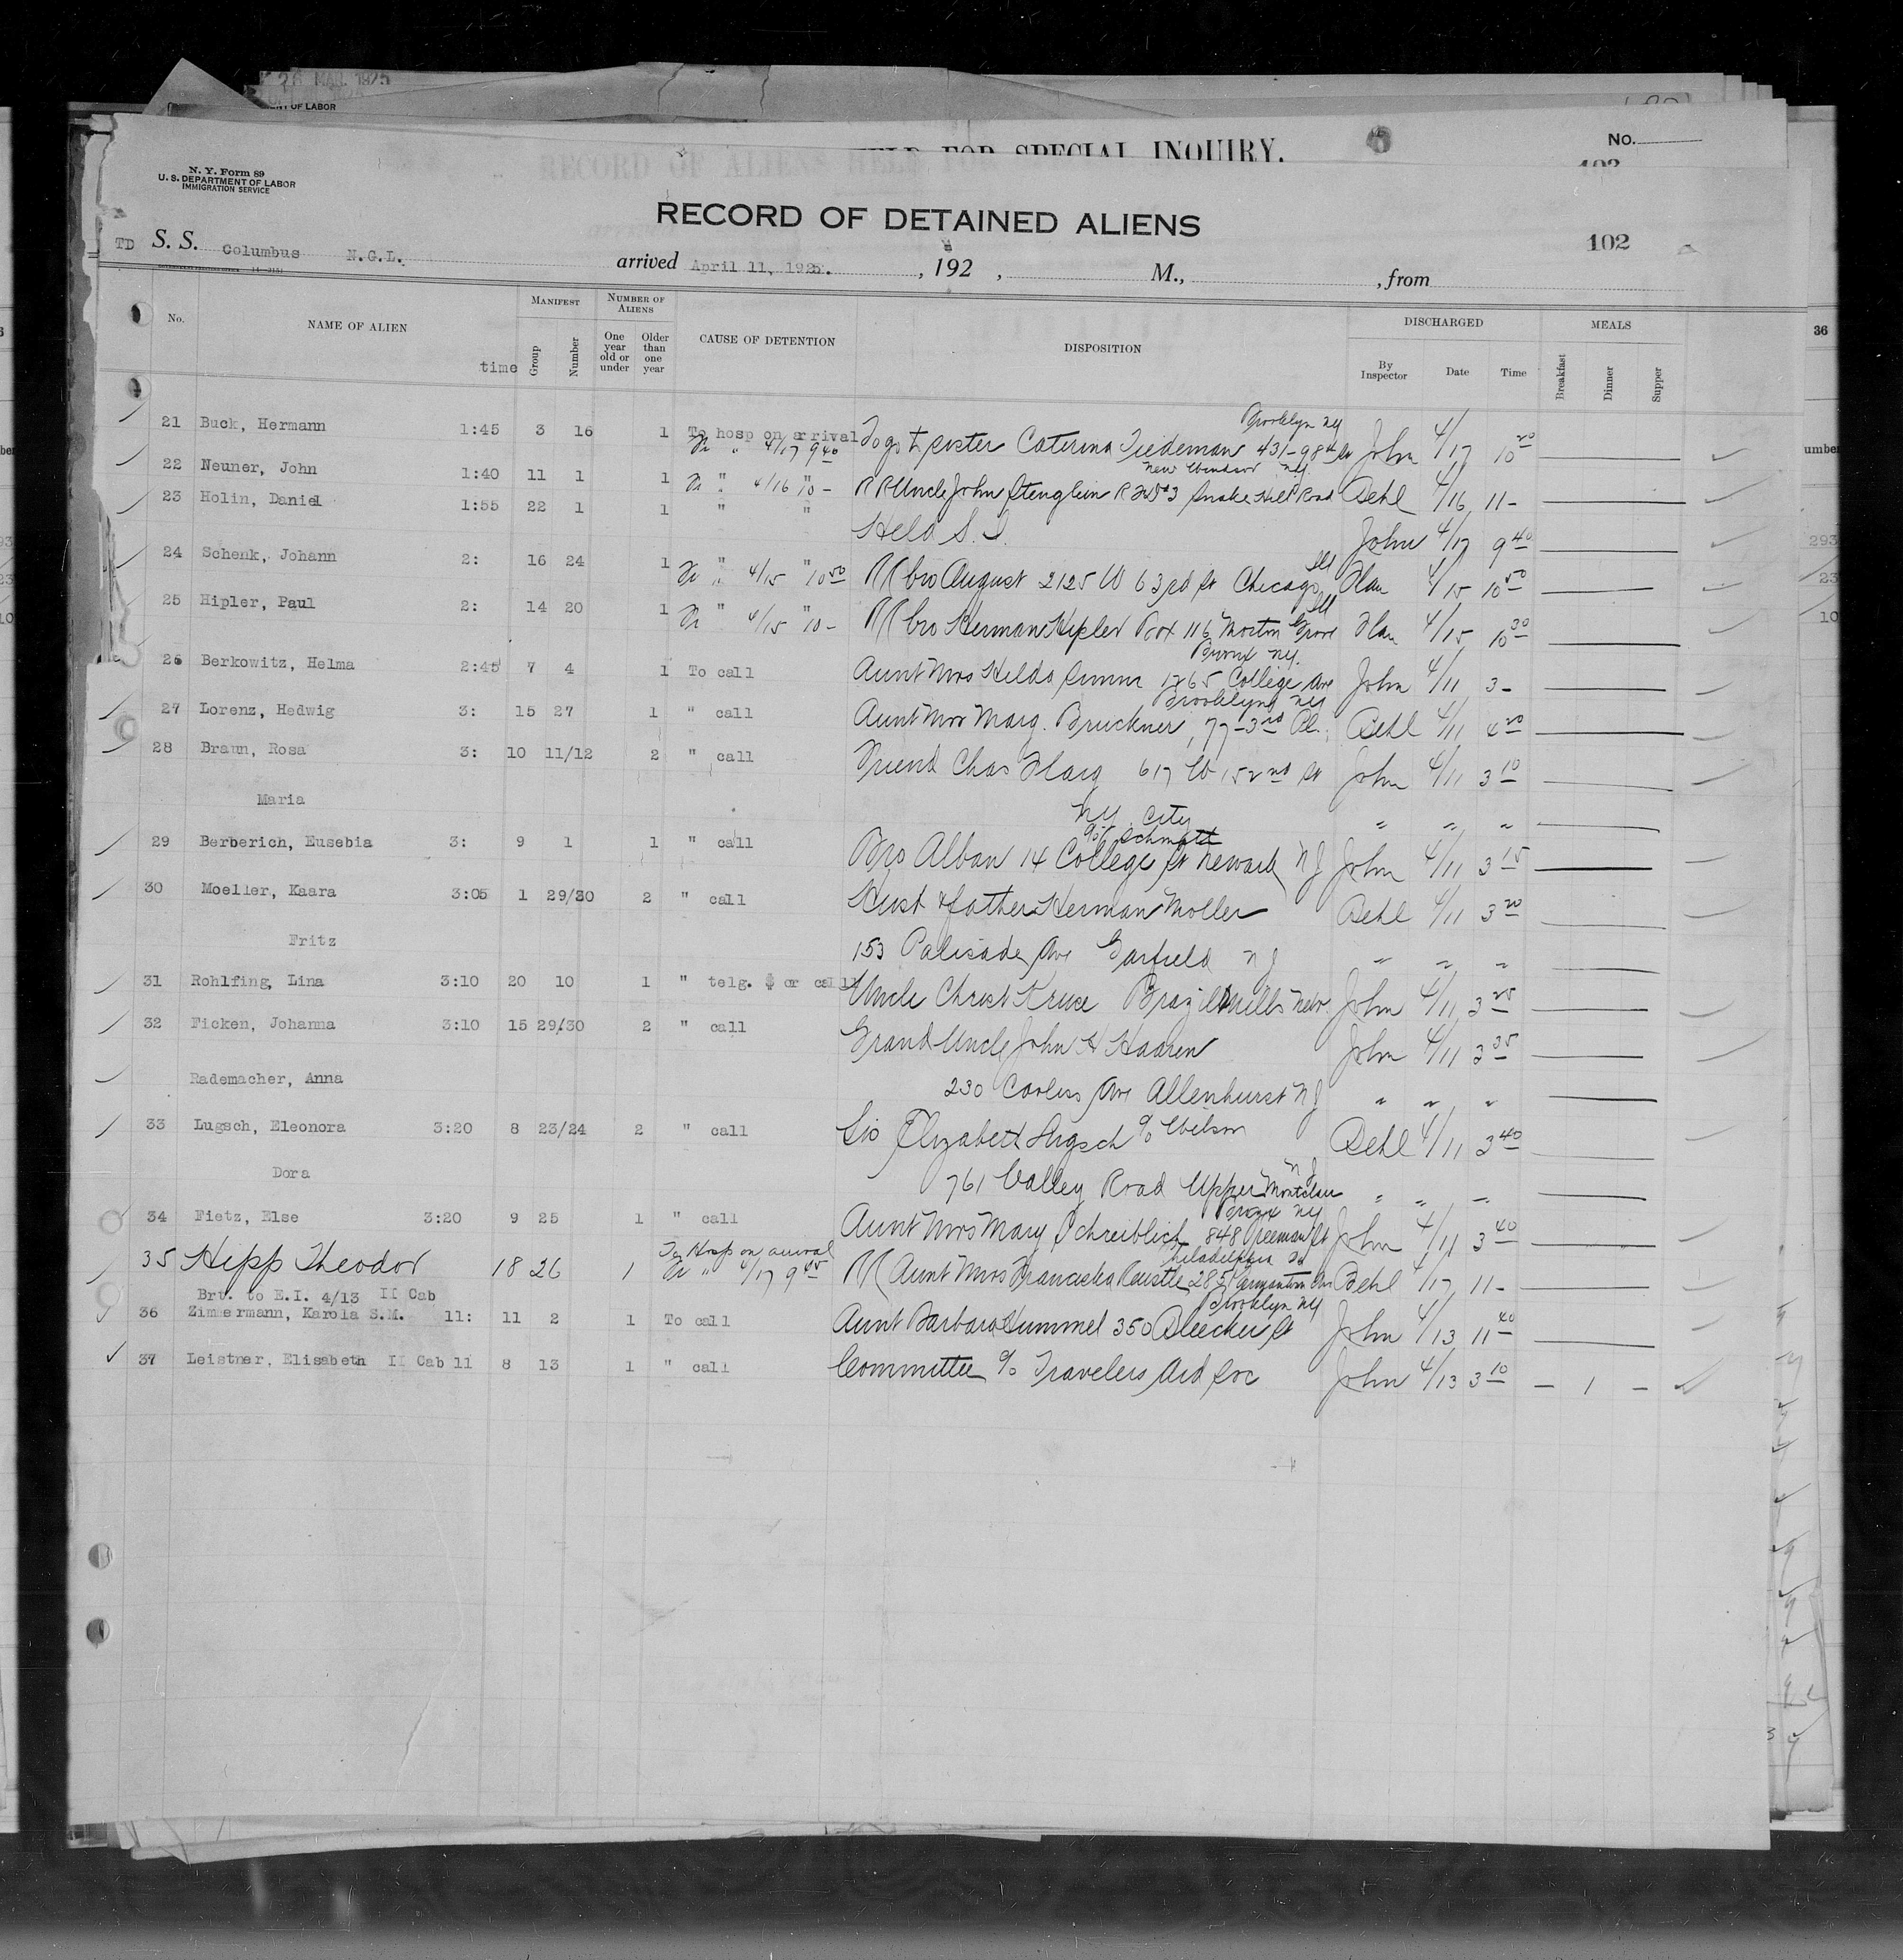 26 MAR. 1925
ENT OF LABOR
HELD FOR SPECIAL INQUIRY.
No.
RECORD OF ALIENS HELD
N. Y. Form 89
U. S. DEPARTMENT OF LABOR
IMMIGRATION SERVICE
RECORD OF DETAINED ALIENS
102
TD S. S. Columbus N.G.L. arrived April 11, 1925. , 192 , M., , from
No. NAME OF ALIEN time MANIFEST Group Number NUMBER OF ALIENS One year old or under Older than one year CAUSE OF DETENTION DISPOSITION DISCHARGED By Inspector Date Time MEALS Breakfast Dinner Supper
36
Brooklyn NY
21 Buck, Hermann 1:45 3 16 1 To hosp on arrival To go to sister Caterina Tiedeman 431-98th St John 4/17 10 20
Fr " 4/17 9 40
New Windsor NY
22 Neuner, John 1:40 11 1 1 Fr " 4/16 " 10 - RR Uncle John Stenglein RFD #3 Snake Hill Road Behl 4/16 11-
23 Holin, Daniel 1:55 22 1 1 " "
Held S. I. John 4/17 9 40
Ill
24 Schenk, Johann 2: 16 24 1 " "
Fr " 4/15 10 50 RR bro August 2125 W 63rd St Chicago Han 4/15 10 50
Ill
25 Hipler, Paul 2: 14 20 1 " "
Fr " 4/15 10 - RR bro Herman Hipler Box 116 Morton Grove Han 4/15 10 30
Bronx NY.
26 Berkowitz, Helma 2:45 7 4 1 To call Aunt Mrs Hilda 1265 College Ave John 4/11 3-
Brooklyn NY
27 Lorenz, Hedwig 3: 15 27 1 " call Aunt Mrs Marg. Bruckner, 77-3rd Pl. Behl 4/11 4 20
28 Braun, Rosa 3: 10 11/12 2 " call Friend Chas Haag 617 W 152nd St John 4/11 3 10
Maria NY. City " " "
c/o Schmatt
29 Berberich, Eusebia 3: 9 1 1 " call Bro Alban 14 College St Newark NJ John 4/11 3 15
30 Moeller, Kaara 3:05 1 29/30 2 " call Husb & father Herman Moller Behl 4/11 3 20
Fritz 153 Palisade Ave Garfield NJ " " "
31 Rohlfing, Lina 3:10 20 10 1 " telg. $ or call Uncle Christ Kruse Brazil Mills Nebr. John 4/11 3 25
32 Ficken, Johanna 3:10 15 29/30 2 " call Grand Uncle John H Haaren John 4/11 3 35
Rademacher, Anna 230 Corlies Ave Allenhurst NJ " " "
33 Lugsch, Eleonora 3:20 8 23/24 2 " call Sis Elizabeth Lugsch c/o Wilson Behl 4/11 3 40
Dora 761 Valley Road Upper Montclair NJ " " "
Bronx NY
34 Fietz, Else 3:20 9 25 1 " call Aunt Mrs Mary Schreiblich 848 Freeman St John 4/11 3 40
To Hosp on arrival
Philadelphia Pa
35 Hipp Theodor 18 26 1 Fr " 4/17 9 45 RR Aunt Mrs Franciska Reustle 2851 Germantown Ave Behl 4/17 11-
Brt. to E.I. 4/13 II Cab
Brooklyn NY
36 Zimmermann, Karola S.M. 11: 11 2 1 To call Aunt Barbara Hummel 350 Bleecker St John 4/13 11 40
37 Leistner, Elisabeth II Cab 11 8 13 1 " call Committee c/o Travelers Aid Soc John 4/13 3 10 - 1 -